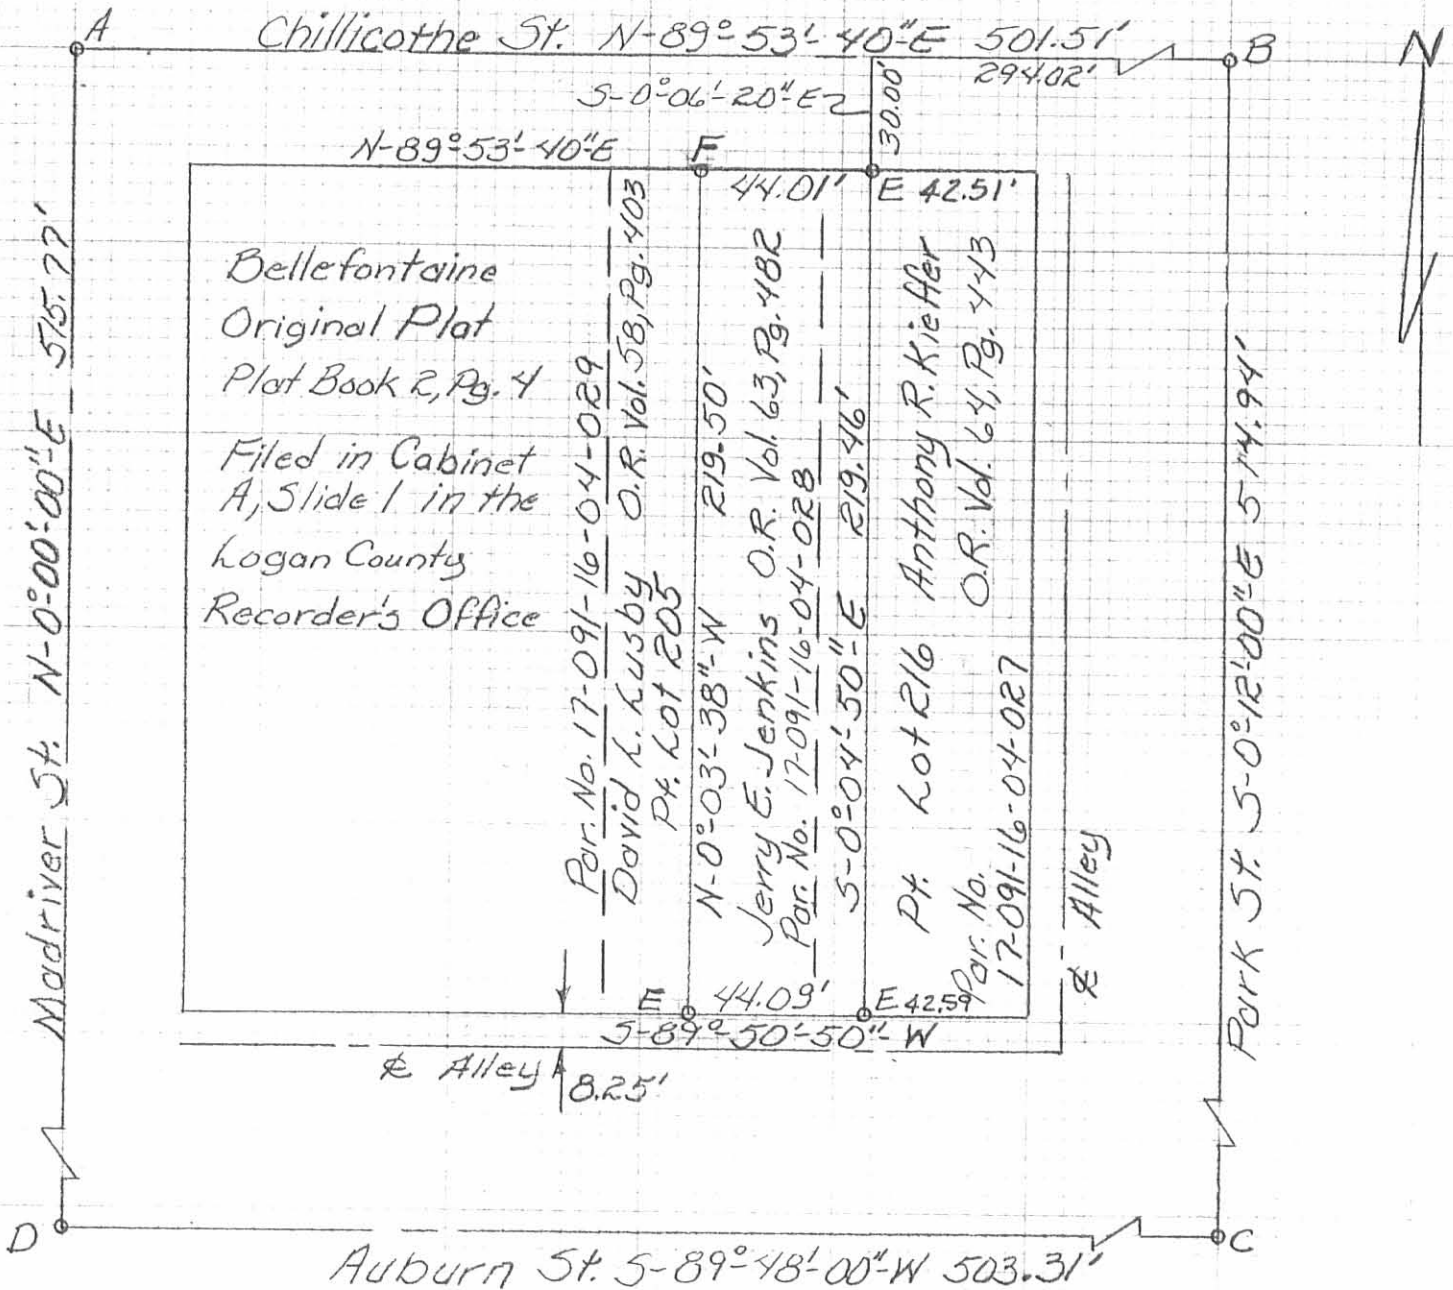 A
Chillicothe St. N-89°-53'-40"-E 501.51'
B
N
294.02'
S-0°-06'-20"-E
30.00'
N-89°-53'-40"E
F
44.01'
E 42.51'
Bellefontaine
Original Plat
Plat Book 2, Pg. 4
Filed in Cabinet
A, Slide 1 in the
Logan County
Recorder's Office
Madriver St. N-0°-00'-00"-E 515.77'
Par. No. 17-091-16-04-029
David L. Lusby O.R. Vol. 58, Pg. 403
Pt. Lot 205
N-0°-03'-38"-W 219.50'
Jerry E. Jenkins O.R. Vol. 63, Pg. 482
Par. No. 17-091-16-04-028
S-0°-04'-50"-E 219.46'
Pt. Lot 216 Anthony R. Kieffer
O.R. Vol. 64, Pg. 443
Par. No.
17-091-16-04-027
℄ Alley
Park St. S-0°-12'-00"-E 514.94'
E
44.09'
E 42.59
S-89°-50'-50"-W
℄ Alley
8.25'
D
C
Auburn St. S-89°-48'-00"-W 503.31'